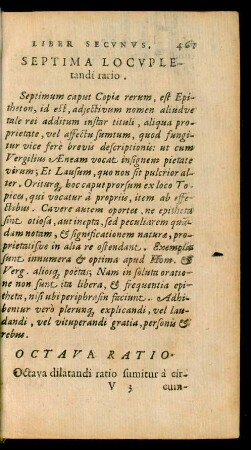 LIBER SECVNVS. 461
SEPTIMA LOCVPLE-
tandi ratio.
Septimum caput Copiæ rerum, est Epi-
theton, id est, adjectivum nomen aliudve
tale rei additum instar tituli, aliqua pro-
prietate, vel affectu sumtum, quod fungi-
tur vice ferè brevis descriptionis: ut cum
Vergilius Æneam vocat insignem pietate
virum; Et Lausum, quo non sit pulcrior al-
ter. Oriturq; hoc caput prorsum ex loco To-
picςα, qui vocatur à propriis, item ab affe-
ctibus. Cavere autem oportet, ne epitheta
sint otiosa, aut inepta, sed peculiarem quan-
dam notam, & significationem naturæ, pro-
prietatisve in alia re ostendant. Exempla
sunt innumera & optima apud Hom. &
Verg. aliosq; poëtas; Nam in soluta oratio-
ne non sunt ita libera, & frequentia epi-
theta, nisi ubi periphrasin faciunt. Adhi-
bentur verò plerunq, explicandi, vel lau-
dandi, vel vituperandi gratia, personis &
rebus.
OCTAVA RATIO.
Octava dilatandi ratio sumitur à cir-
V 3 cum-